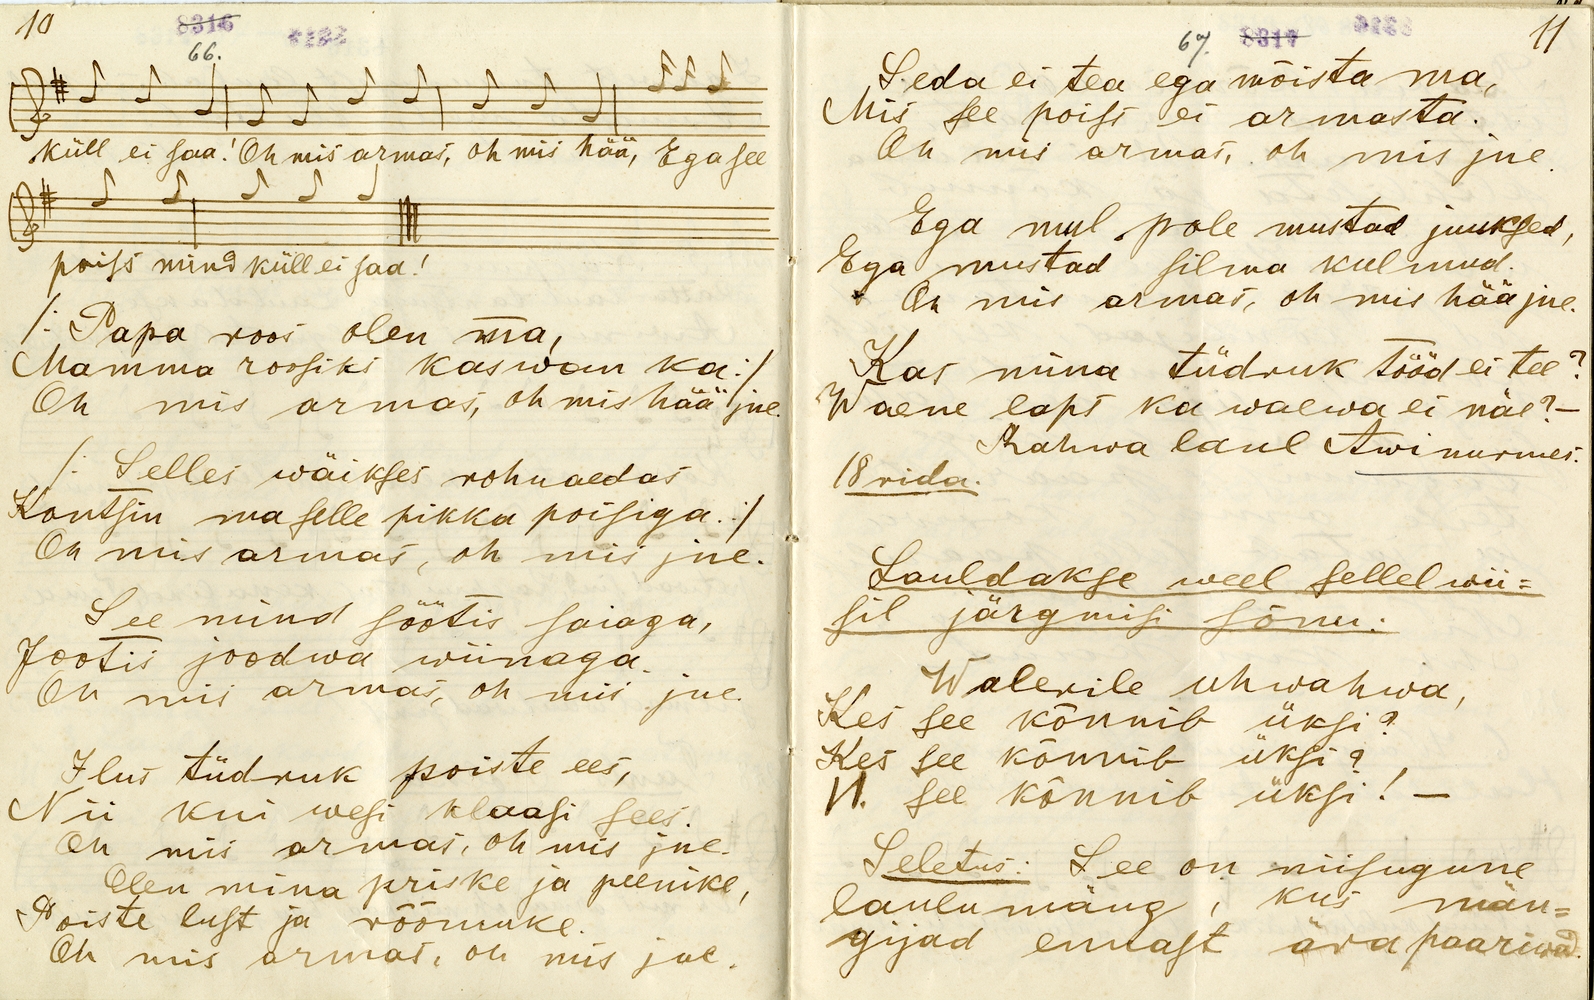 10
8316
66.
küll ei saa! Oh mis armas, oh mis hää, Ega see
poiss mind küll ei saa!
/: Papa roos olen ma,
Mamma roosiks kaswan ka :/
Oh mis armas, oh mis hää jne.
/: Selles wäikses rohuaedas
Kõntsin ma selle pikka poisiga. :/
Oh mis armas, oh mis jne.
See mind söötis saiaga,
Jootis joodwa wiinaga.
Oh mis armas, oh mis jne.
Ilus tüdruk poiste ees,
Nii kui wesi klaasi sees.
Oh mis armas, oh mis jne.
Olen mina priske ja peenike,
Poiste lust ja rõõmuke.
Oh mis armas, oh mis jne.
67.
8317
11
Seda ei tea ega mõista ma,
Mis see poiss ei armasta.
Oh mis armas, oh mis jne.
Ega mul pole mustad juuksed,
Ega mustad silma kulmud.
Oh mis armas, oh mis hää jne.
Kas mina tüdruk tööd ei tee?
Waene laps ka waewa ei näe? —
Rahwa laul Awinurmes.
18 rida.
Lauldakse weel sellel wii=
sil järgmisi sõnu:
Walerile uhwahwa,
Kes see kõnnib üksi?
Kes see kõnnib üksi?
N. see kõnnib üksi! —
Seletus: See on niisugune
laulumäng, kus män=
gijad ennast ära paariwad.